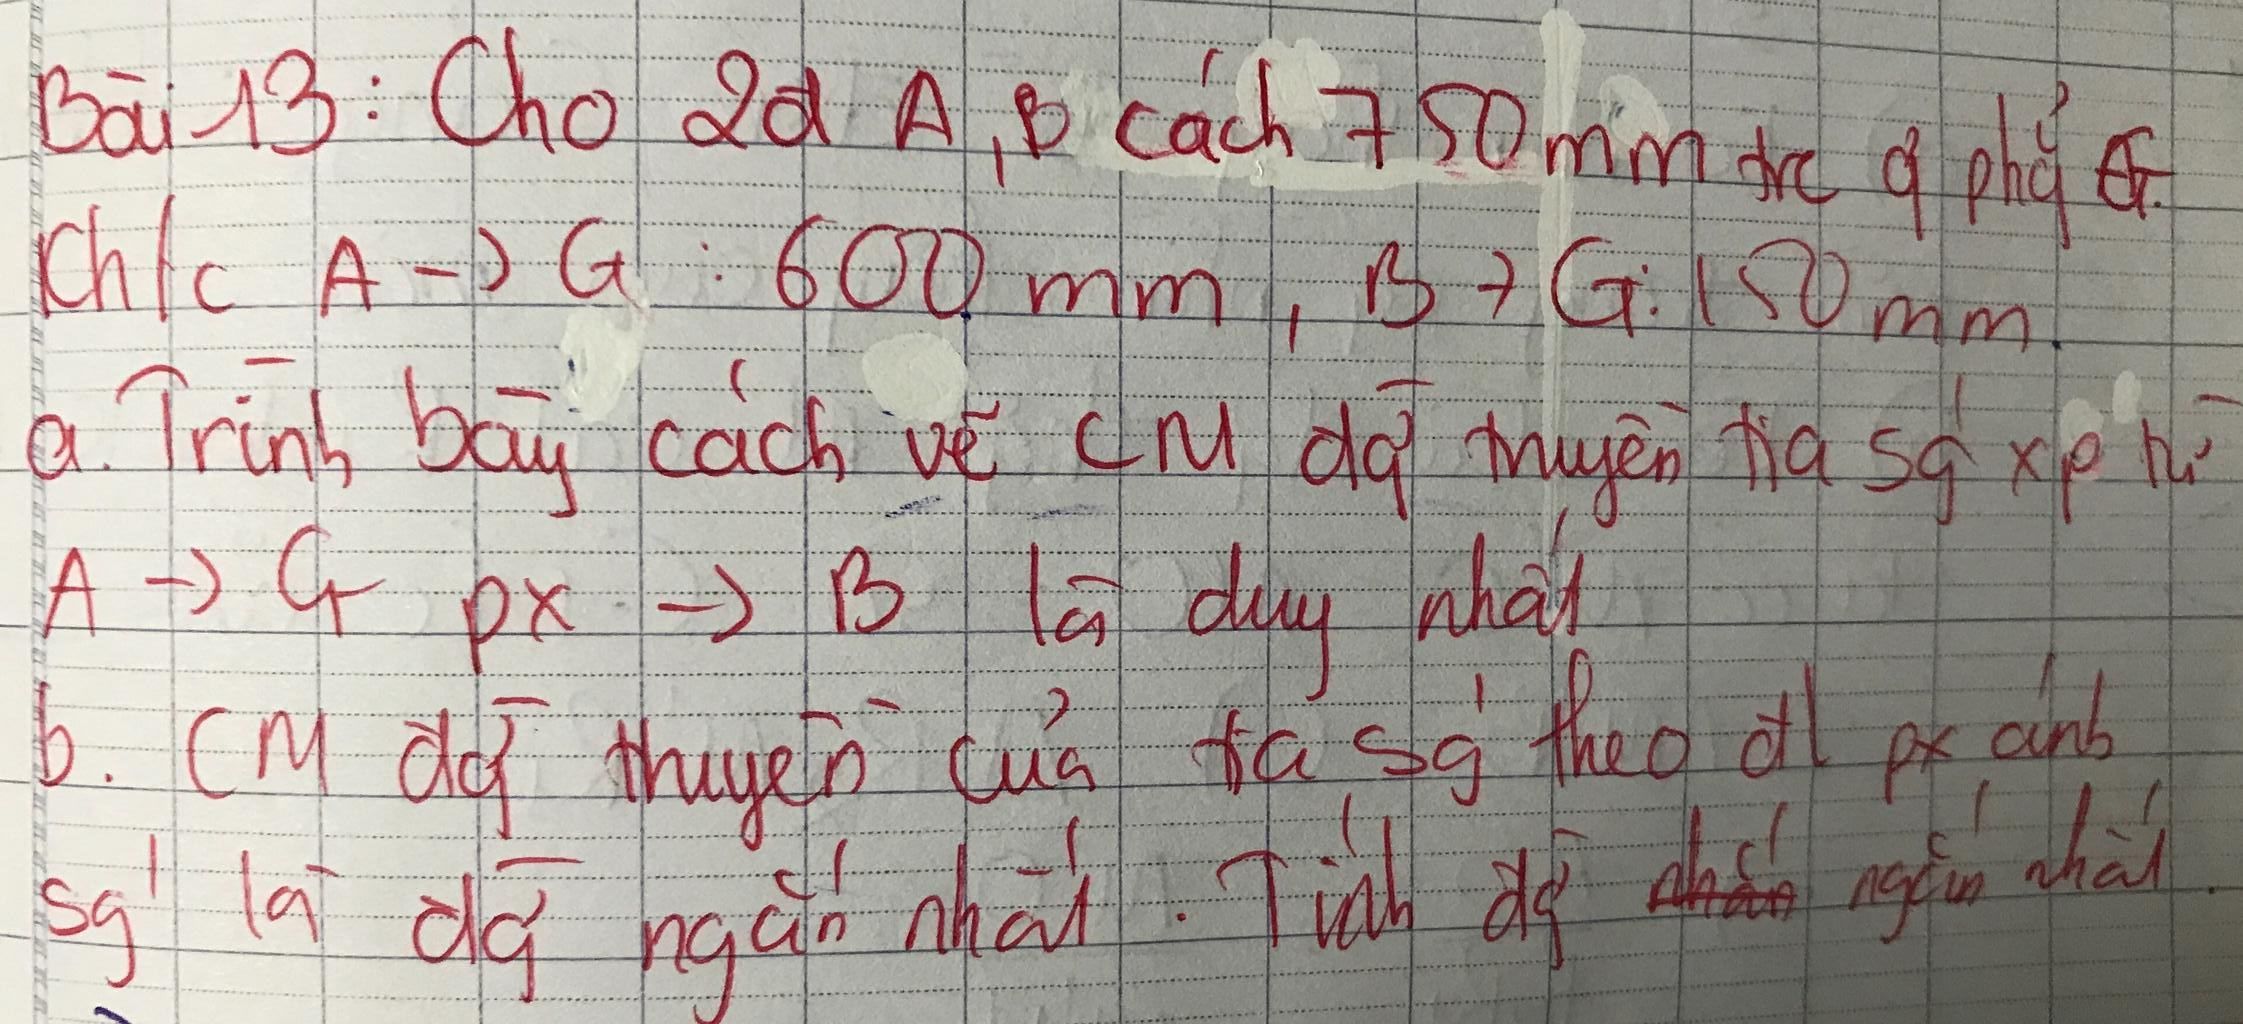 Bài 13: Cho 2đ A, B cách 750mm trc g phg G.
Kh/c A -> G : 600 mm, B -> G: 150 mm.
a. Trình bày cách vẽ CM đg truyền tia sg xp từ
A -> G px -> B là duy nhất
b. CM đg thuyền của tia sg theo đl px ánh
sg là đg ngắn nhất. Tính đg ngắn nhất.